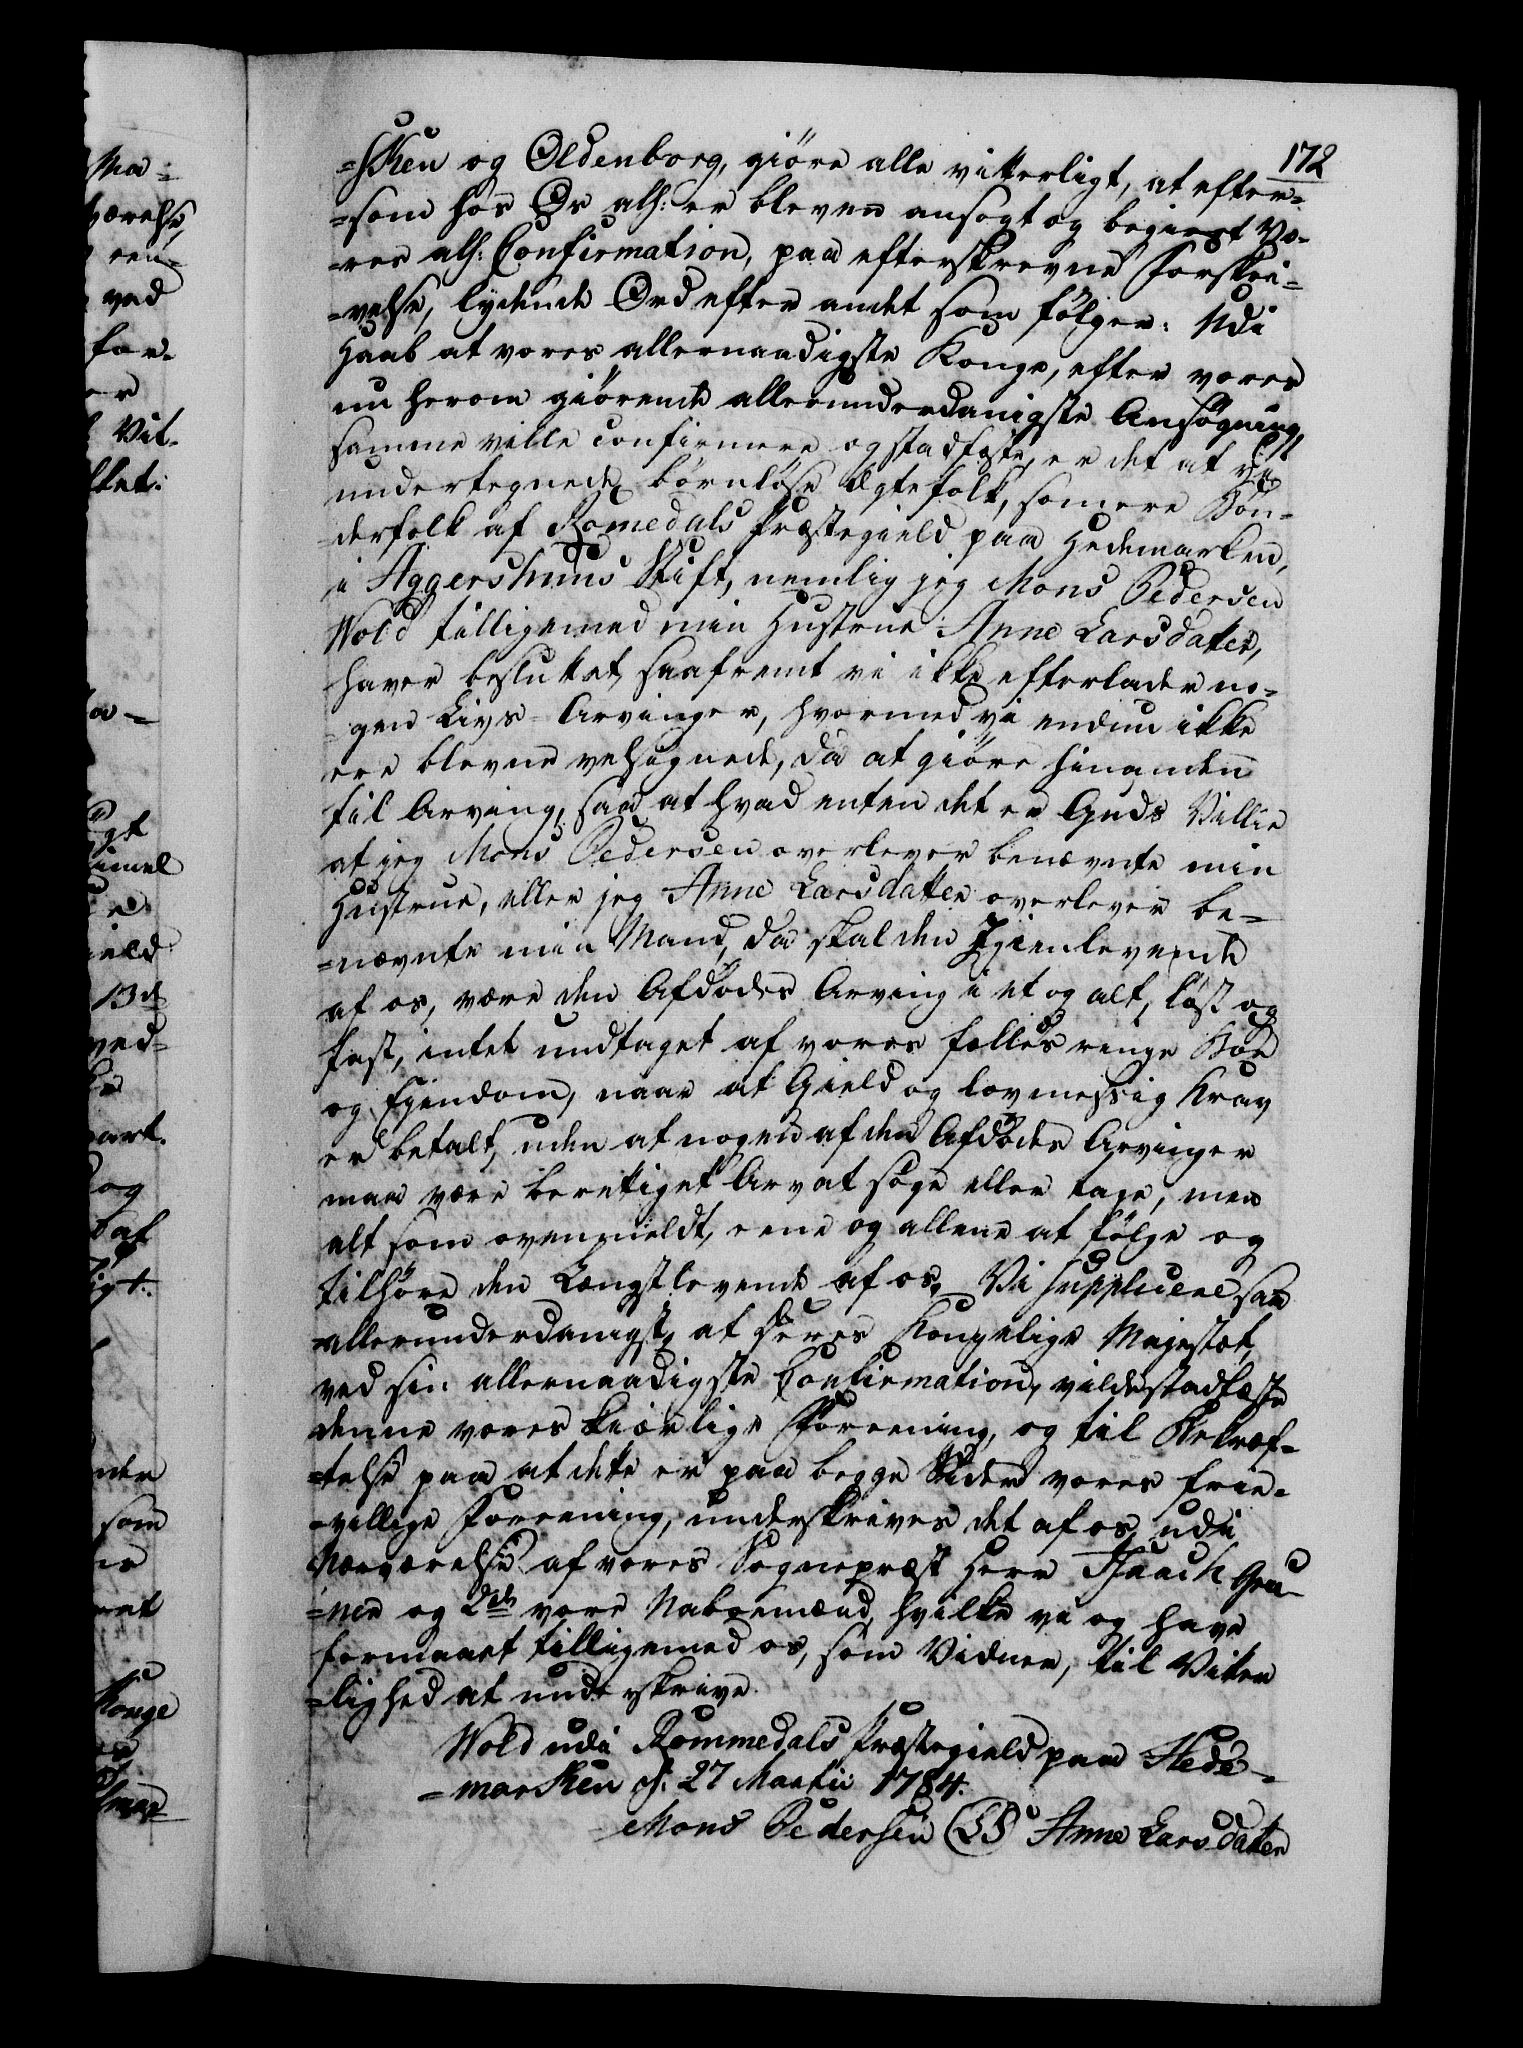 172
=sken og Oldenborg, giöre alle vitterligt, at efter=
=som hos Os alh: er bleven ansøgt og begiert Vo=
=res alh: Confirmation, paa efterskrevne Forskri=
=velse, lydende Ord efter andet som fölger: Udi
Haab at vores allernaadigste Konge, efter vores
nu herom giörende allerunderdanigste Ansøgning,
samme ville confirmere og stadfæste, er det at vi
undertegnede börnlöse Ægtefolk, som ere Bön=
=derfolk af Romedals Præstegield paa Hedemarken,
i Aggershuus Stift, nemlig jeg Mons Pedersen
Wold tilligemed min Hustrue Anne Larsdatter,
haver besluttet, saafremt vi ikke efterlader no=
=gen Livs-Arvinger, hvormed vi endnu ikke
ere blevne velsignede, da at giöre hinanden
til Arving, saa at hvad enten det er Guds Villie
at jeg Mons Pedersen overlever benævnte min
Hustrue, eller jeg Anne Larsdatter overlever be=
=nævnte min Mand, da skal den Igienlevende
af os, være den Afdödes Arving i et og alt, löst og
fast, intet undtaget af vores fælles ringe Boe
og Ejendom, naar at Gield og lovmessig Krav
er betalt, uden at nogen af den Afdödes Arvinger
maa være berettiget Arv at söge eller tage, men
alt som ovenmeldt, eene og allene at fölge og
tilhöre den Længstlevende af os. Vi supplicere saa
allerunderdanigst, at Hans Kongelige Majestæt,
ved sin allernaadigste Confirmation, vilde stadfæste
denne vores kiærlige Foreening, og til Bekræf=
=telse paa at dette er paa begge Sider vores frie=
=villige Foreening, underskrives det af os udi
Nærværelse af vores Sognepræst Herr Isaach Gru=
=ner og 2de vore Naboemænd, hvilke vi og have
formaaet tilligemed os, som Vidner, til Vitter
=lighed at underskrive.
Wold udi Rommedals Præstegield paa Hede=
=marken d: 27 Martii 1784.
Mons Pedersen (LS) Anne Larsdatter